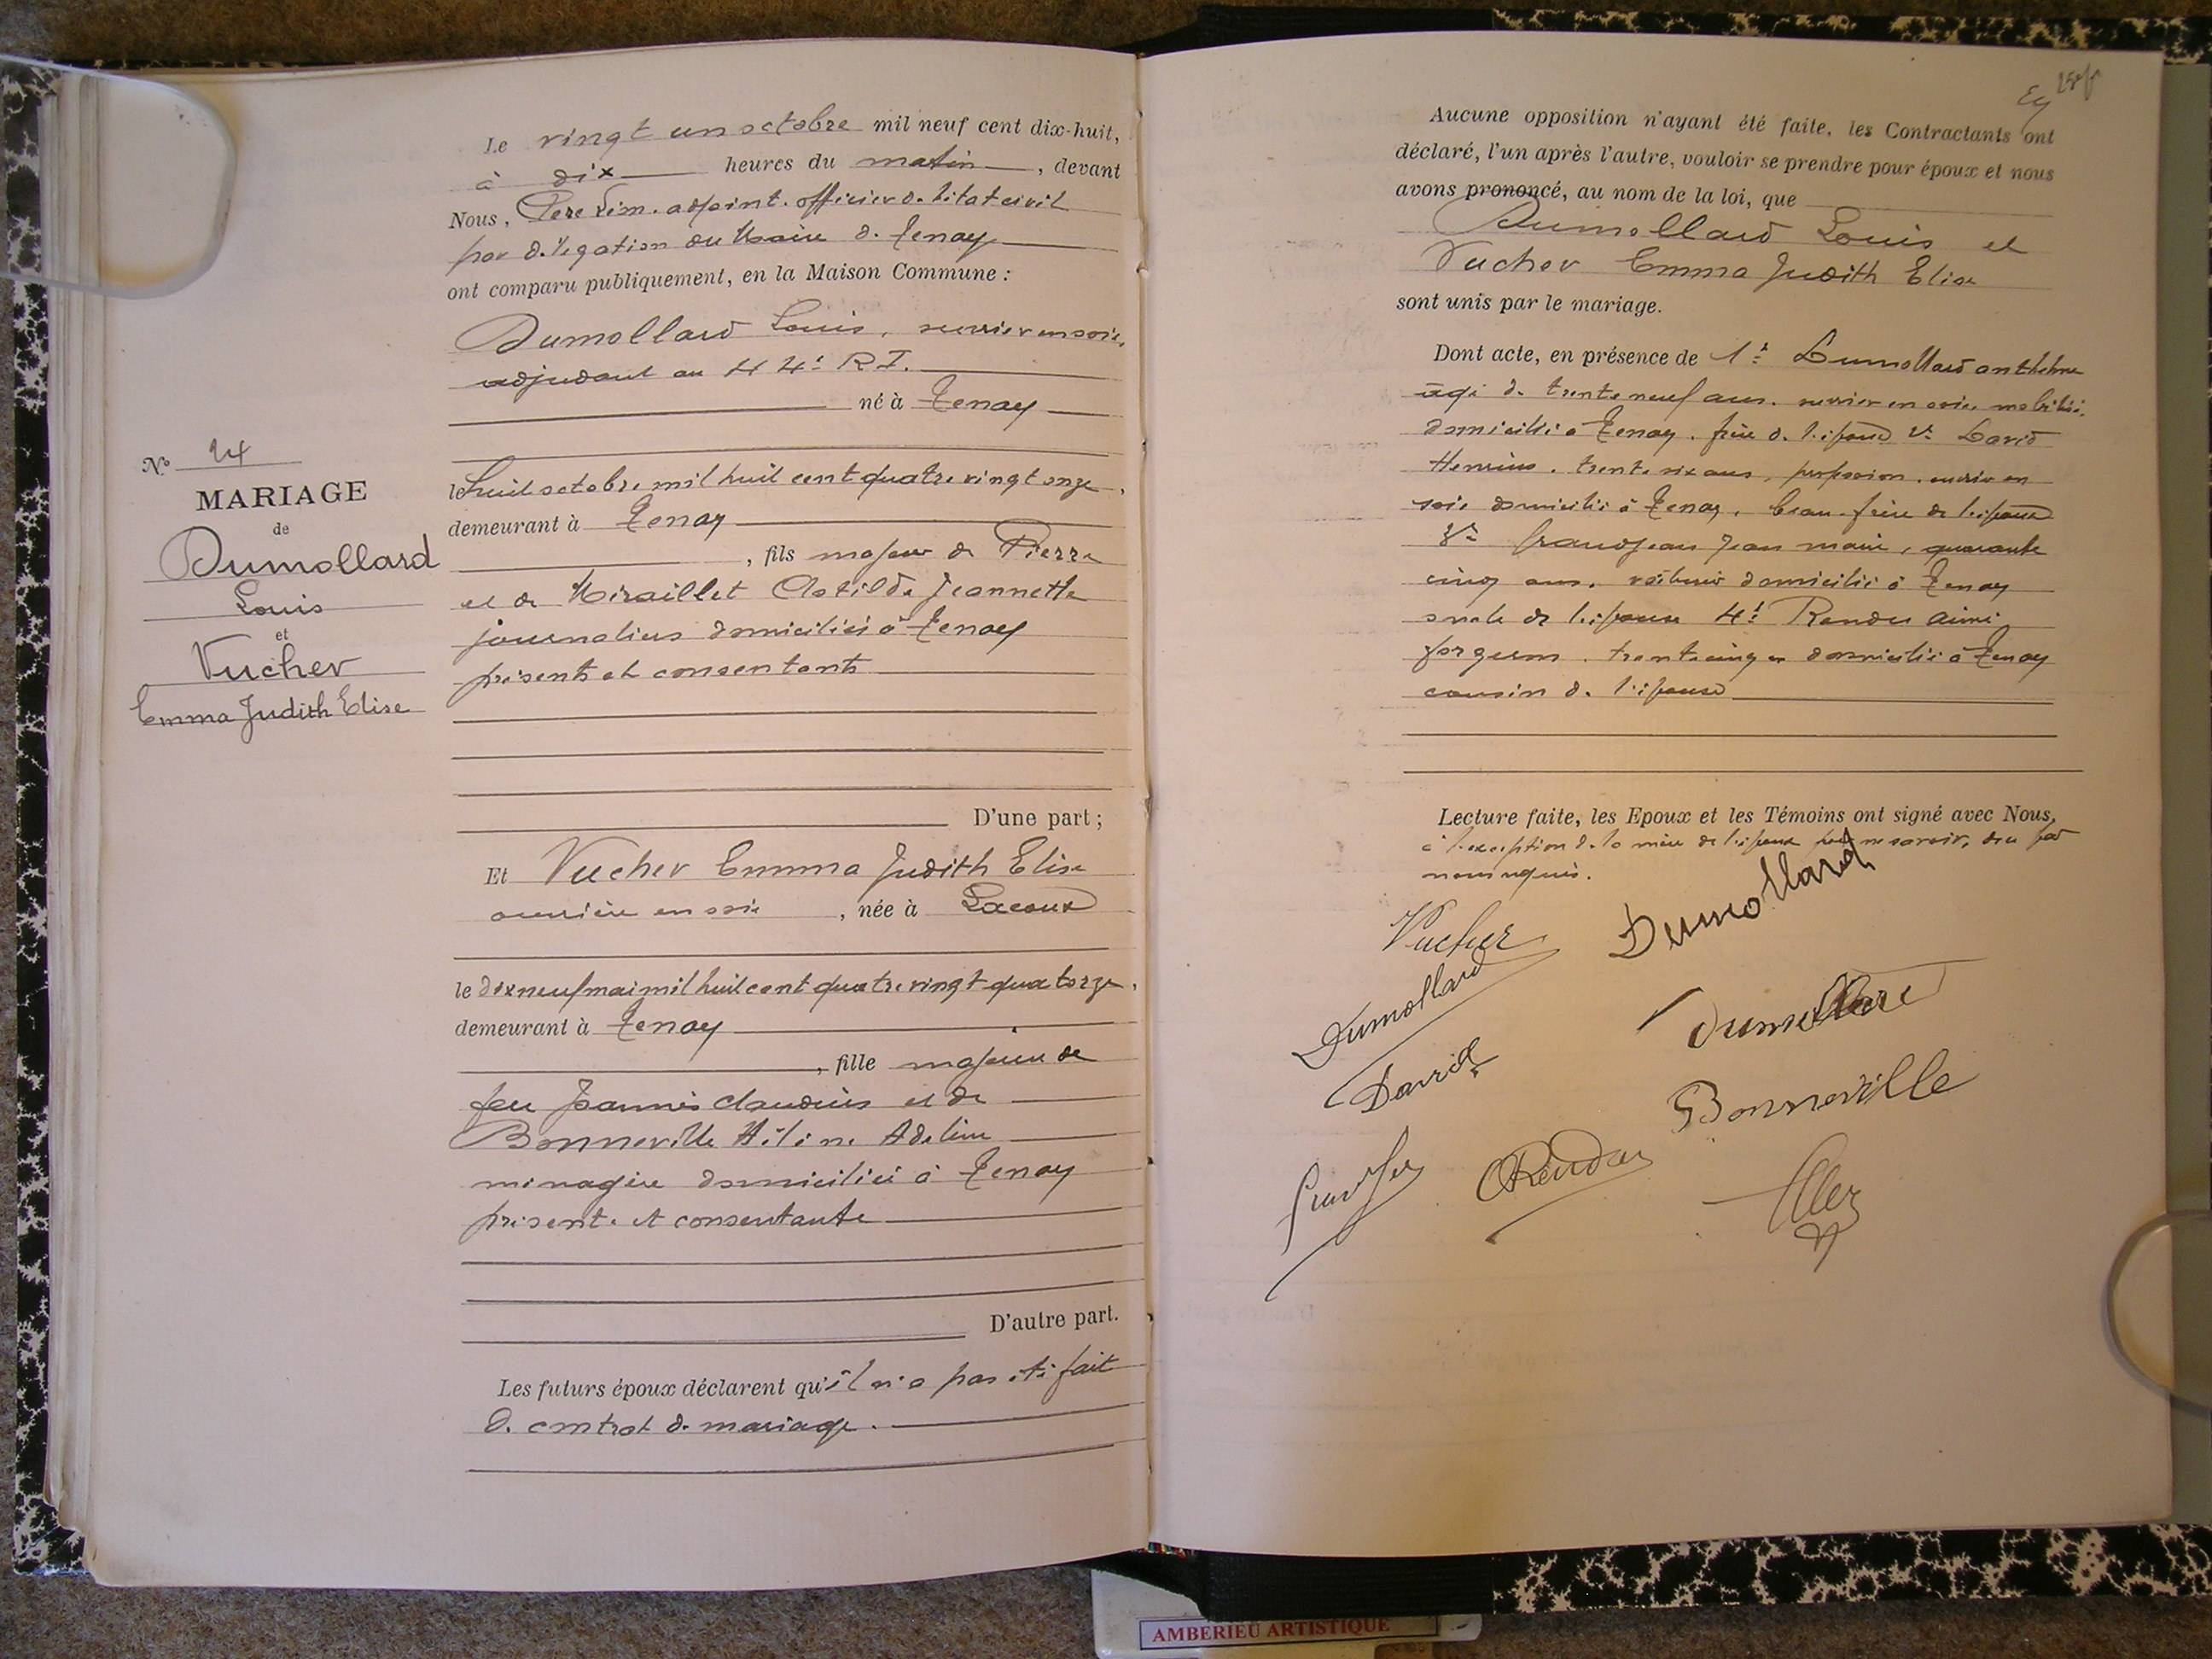 Le vingt un octobre mil neuf cent dix-huit,
à dix heures du matin, devant
Nous, adjoint. officier de l'état civil
par délégation du Maire de Tenay
ont comparu publiquement, en la Maison Commune :
Dumollard Louis, ouvrier en soie,
adjudant au 44e R I.
né à Tenay
le huit octobre mil huit cent quatre vingt onze,
demeurant à Tenay
, fils majeur de Pierre
et de Miraillet Clotilde Jeannette
journaliers domiciliés à Tenay
présents et consentants
D'une part ;
Et Vucher Emma Judith Elise
ouvrière en soie, née à Lacoux
le dix neuf mai mil huit cent quatre vingt quatorze,
demeurant à Tenay
, fille majeure de
feu Joannès Claudius et de
Bonneville Hélène Adeline
ménagère domiciliée à Tenay
présente et consentante
D'autre part.
Les futurs époux déclarent qu'il n'a pas été fait
de contrat de mariage.
N° 24
MARIAGE
de
Dumollard
Louis
et
Vucher
Emma Judith Elise
Aucune opposition n'ayant été faite, les Contractants ont
déclaré, l'un après l'autre, vouloir se prendre pour époux et nous
avons prononcé, au nom de la loi, que
Dumollard Louis et
Vucher Emma Judith Elise
sont unis par le mariage.
Dont acte, en présence de 1° Dumollard Anthelme
âgé de trente neuf ans. ouvrier en soie, mobilisé,
domicilié à Tenay. frère de l'époux 2° David
trente six ans, profession. ouvrier en
soie domicilié à Tenay, beau-frère de l'époux
3° Grandjean Jean marie, quarante
cinq ans. voiturier domicilié à Tenay
oncle de l'épouse 4° Rendu Aimé
forgeron. trente cinq domicilié à Tenay
cousin de l'épouse
Lecture faite, les Epoux et les Témoins ont signé avec Nous,
à l'exception de la mère de l'époux pour ne savoir, de ce par
nous requis.
Vucher Dumollard
Dumollard Dumollard
David Bonneville
Rendu
AMBERIEU ARTISTIQUE